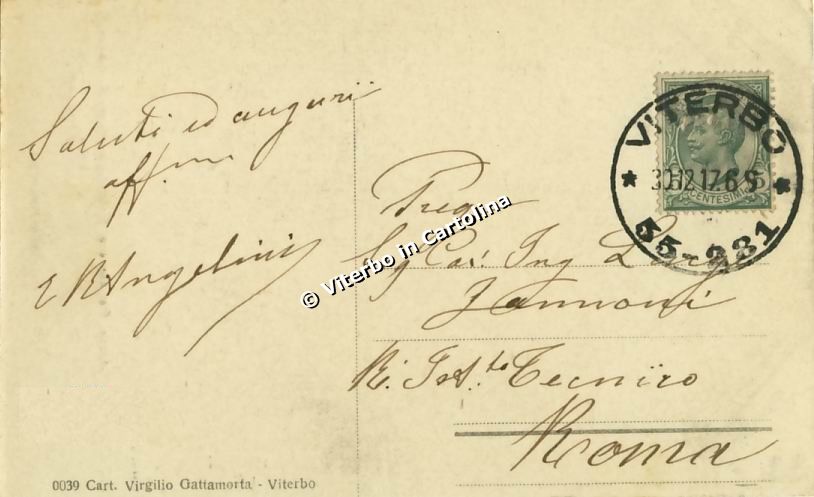 Saluti ed auguri
aff.mi
E R Angelini
VITERBO
30.12.17.6 S
CENTESIMI 5
55-231
Preg.
Sig Cav. Ing Luigi
Zannoni
R. Ist.to Tecnico
Roma
© Viterbo in Cartolina
0039 Cart. Virgilio Gattamorta - Viterbo